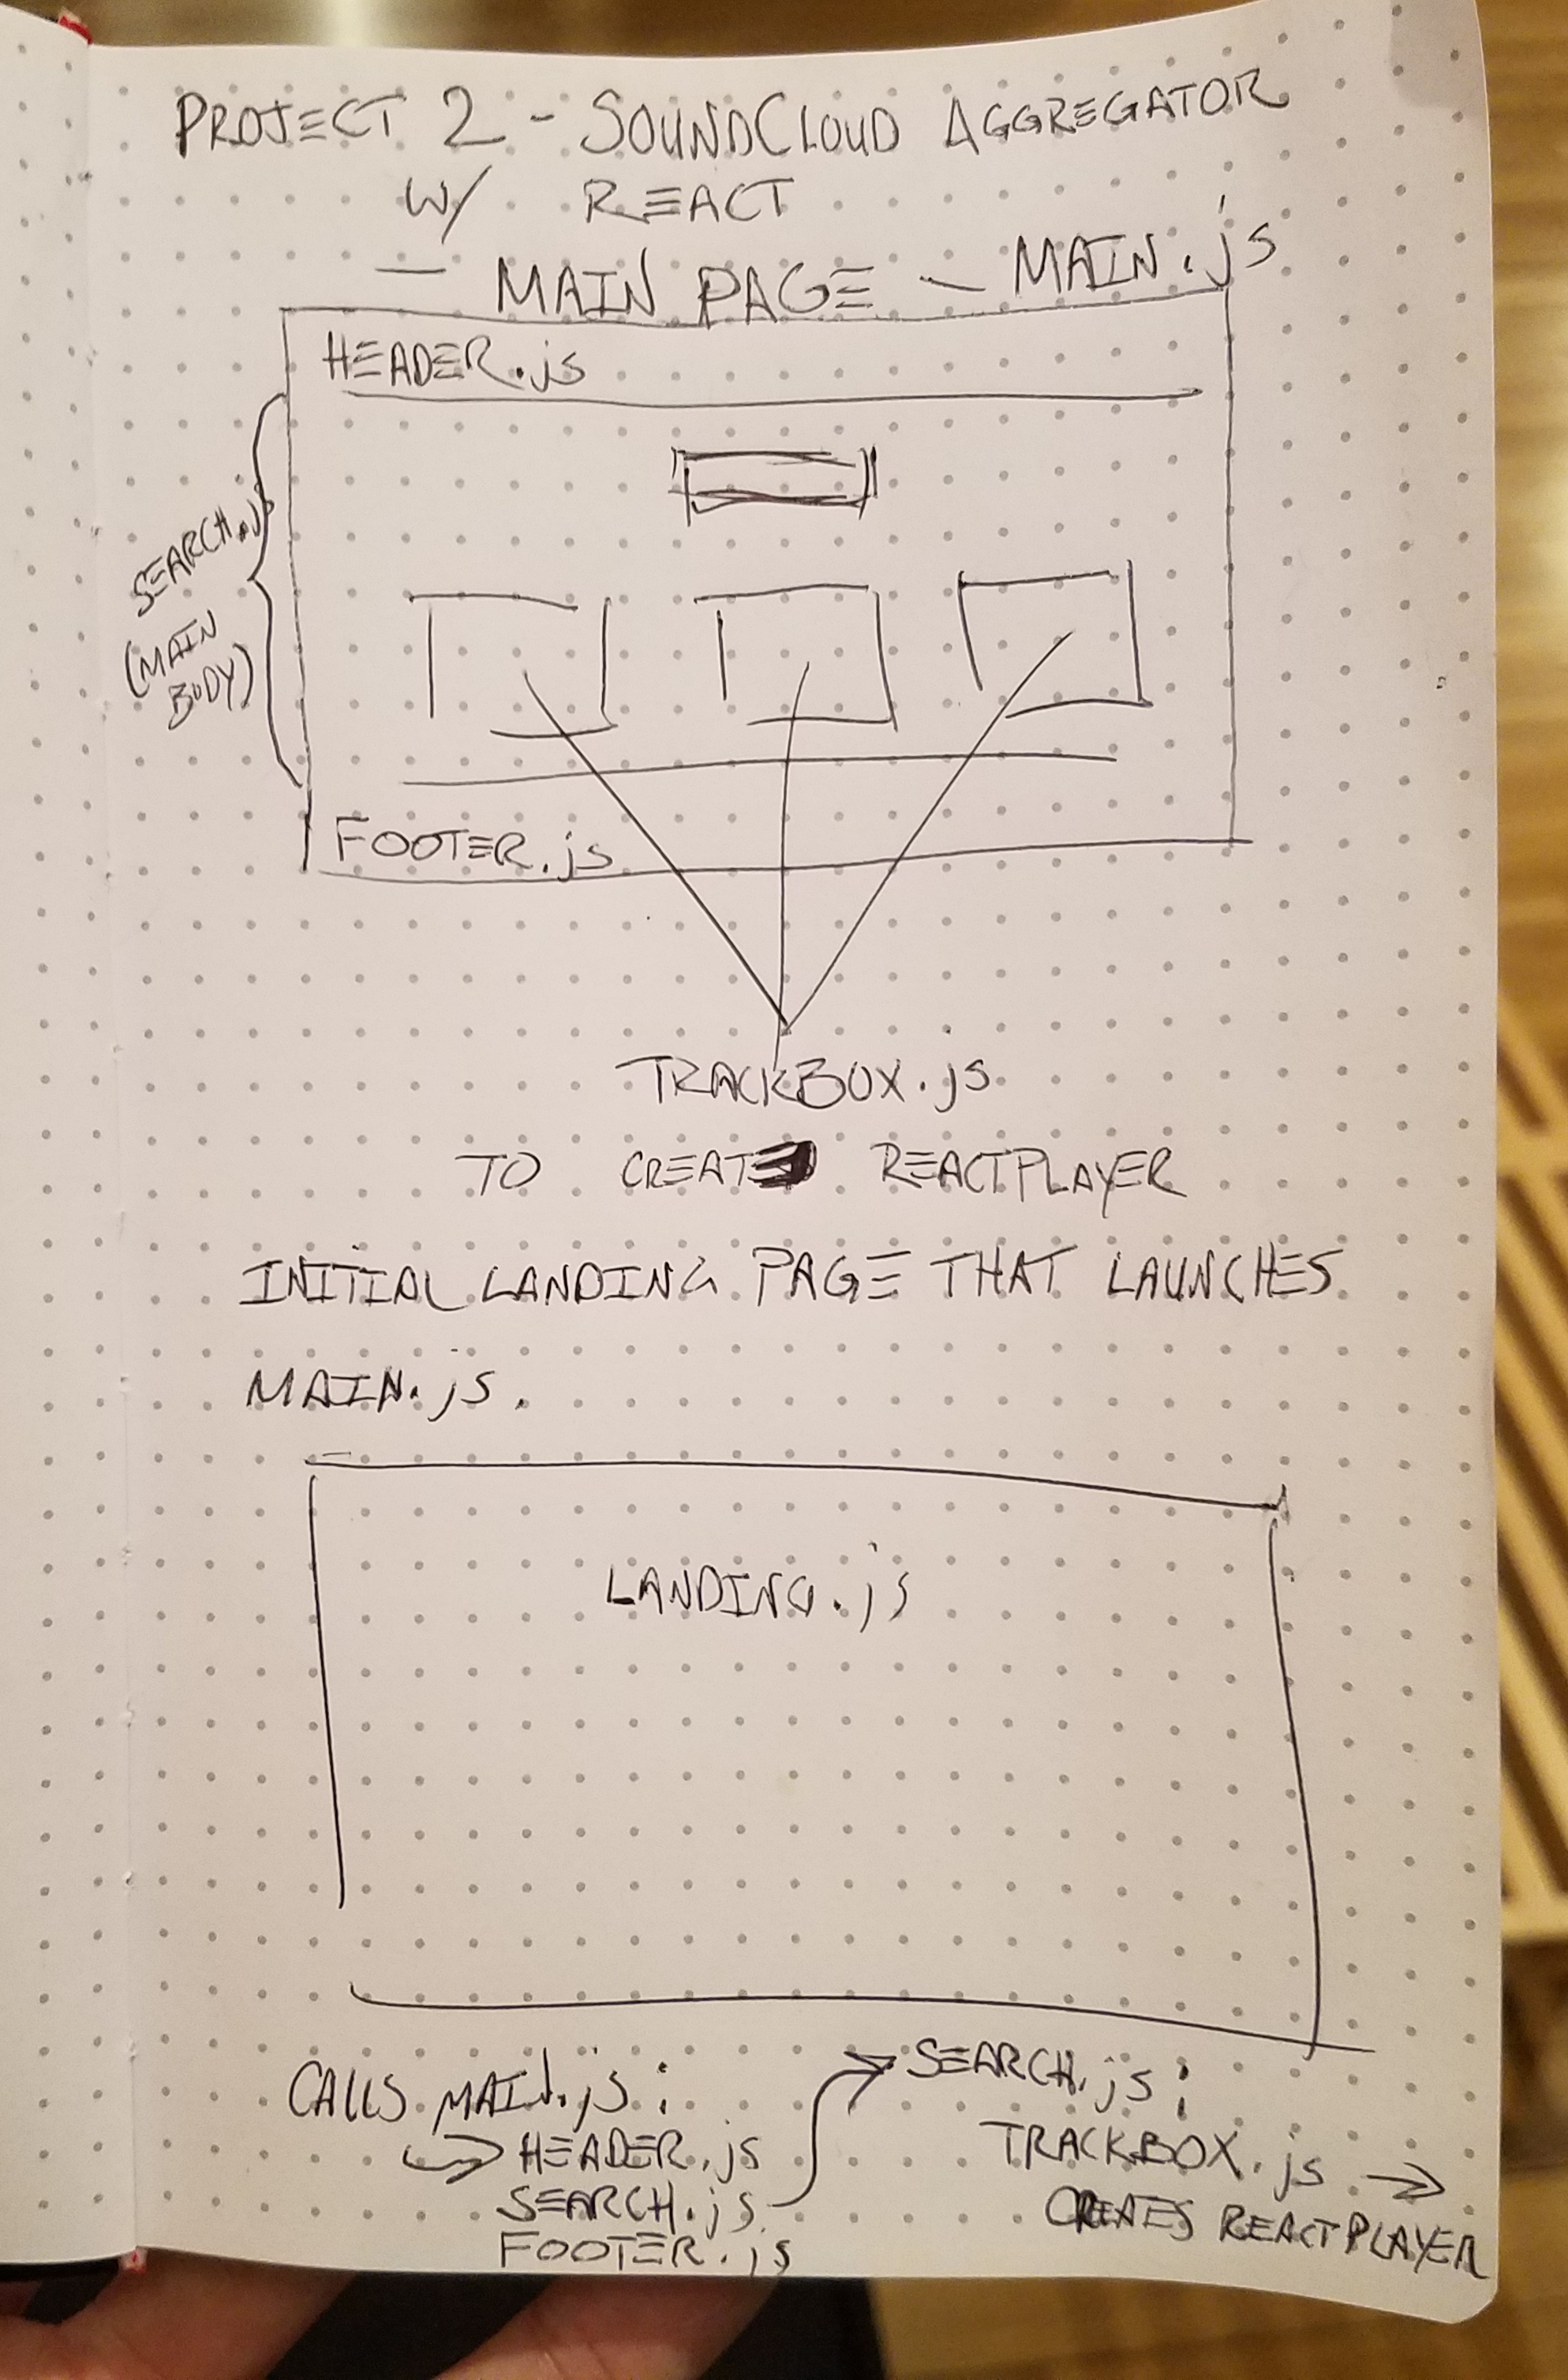 PROJECT 2 - SOUNDCLOUD AGGREGATOR
W/ REACT
— MAIN PAGE – MAIN.js
HEADER.js
SEARCH.js
(MAIN
BODY)
FOOTER.js
TRACKBOX.js
TO CREATE REACTPLAYER
INITIAL LANDING PAGE THAT LAUNCHES
MAIN.js.
LANDING.js
CALLS MAIN.js:
→ HEADER.js
SEARCH.js
FOOTER.js
→ SEARCH.js:
TRACKBOX.js →
CREATES REACTPLAYER